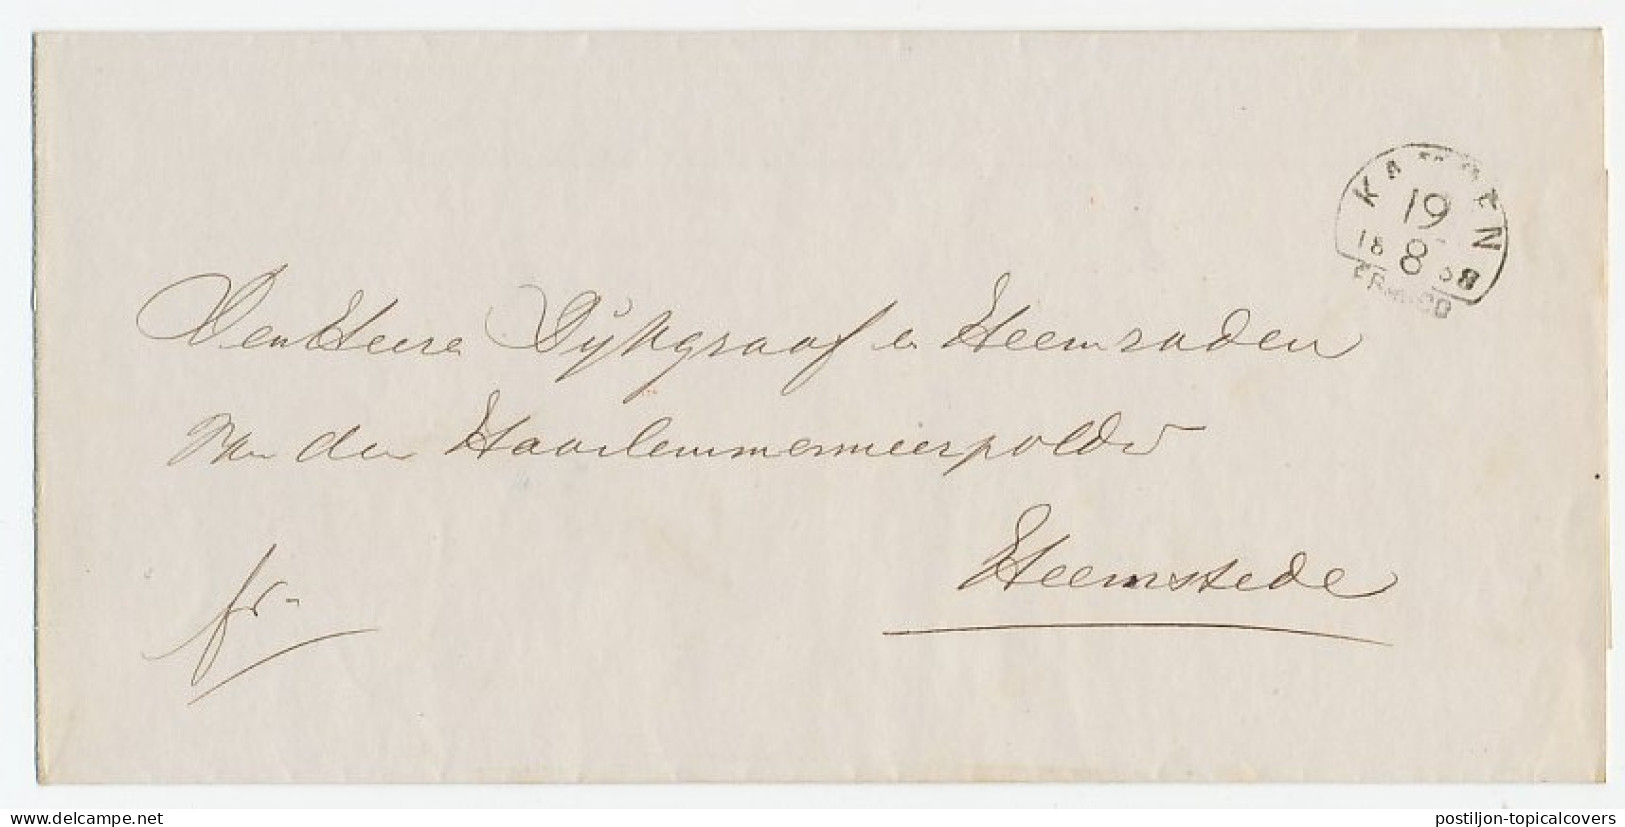 KAMPEN
19
18 8 68
FRANCO
Den Heere Dijkgraaf en Heemraden
Van den Haarlemmermeerpolder
Heemstede
fr.
delcampe.net
postiljon-topicalcovers